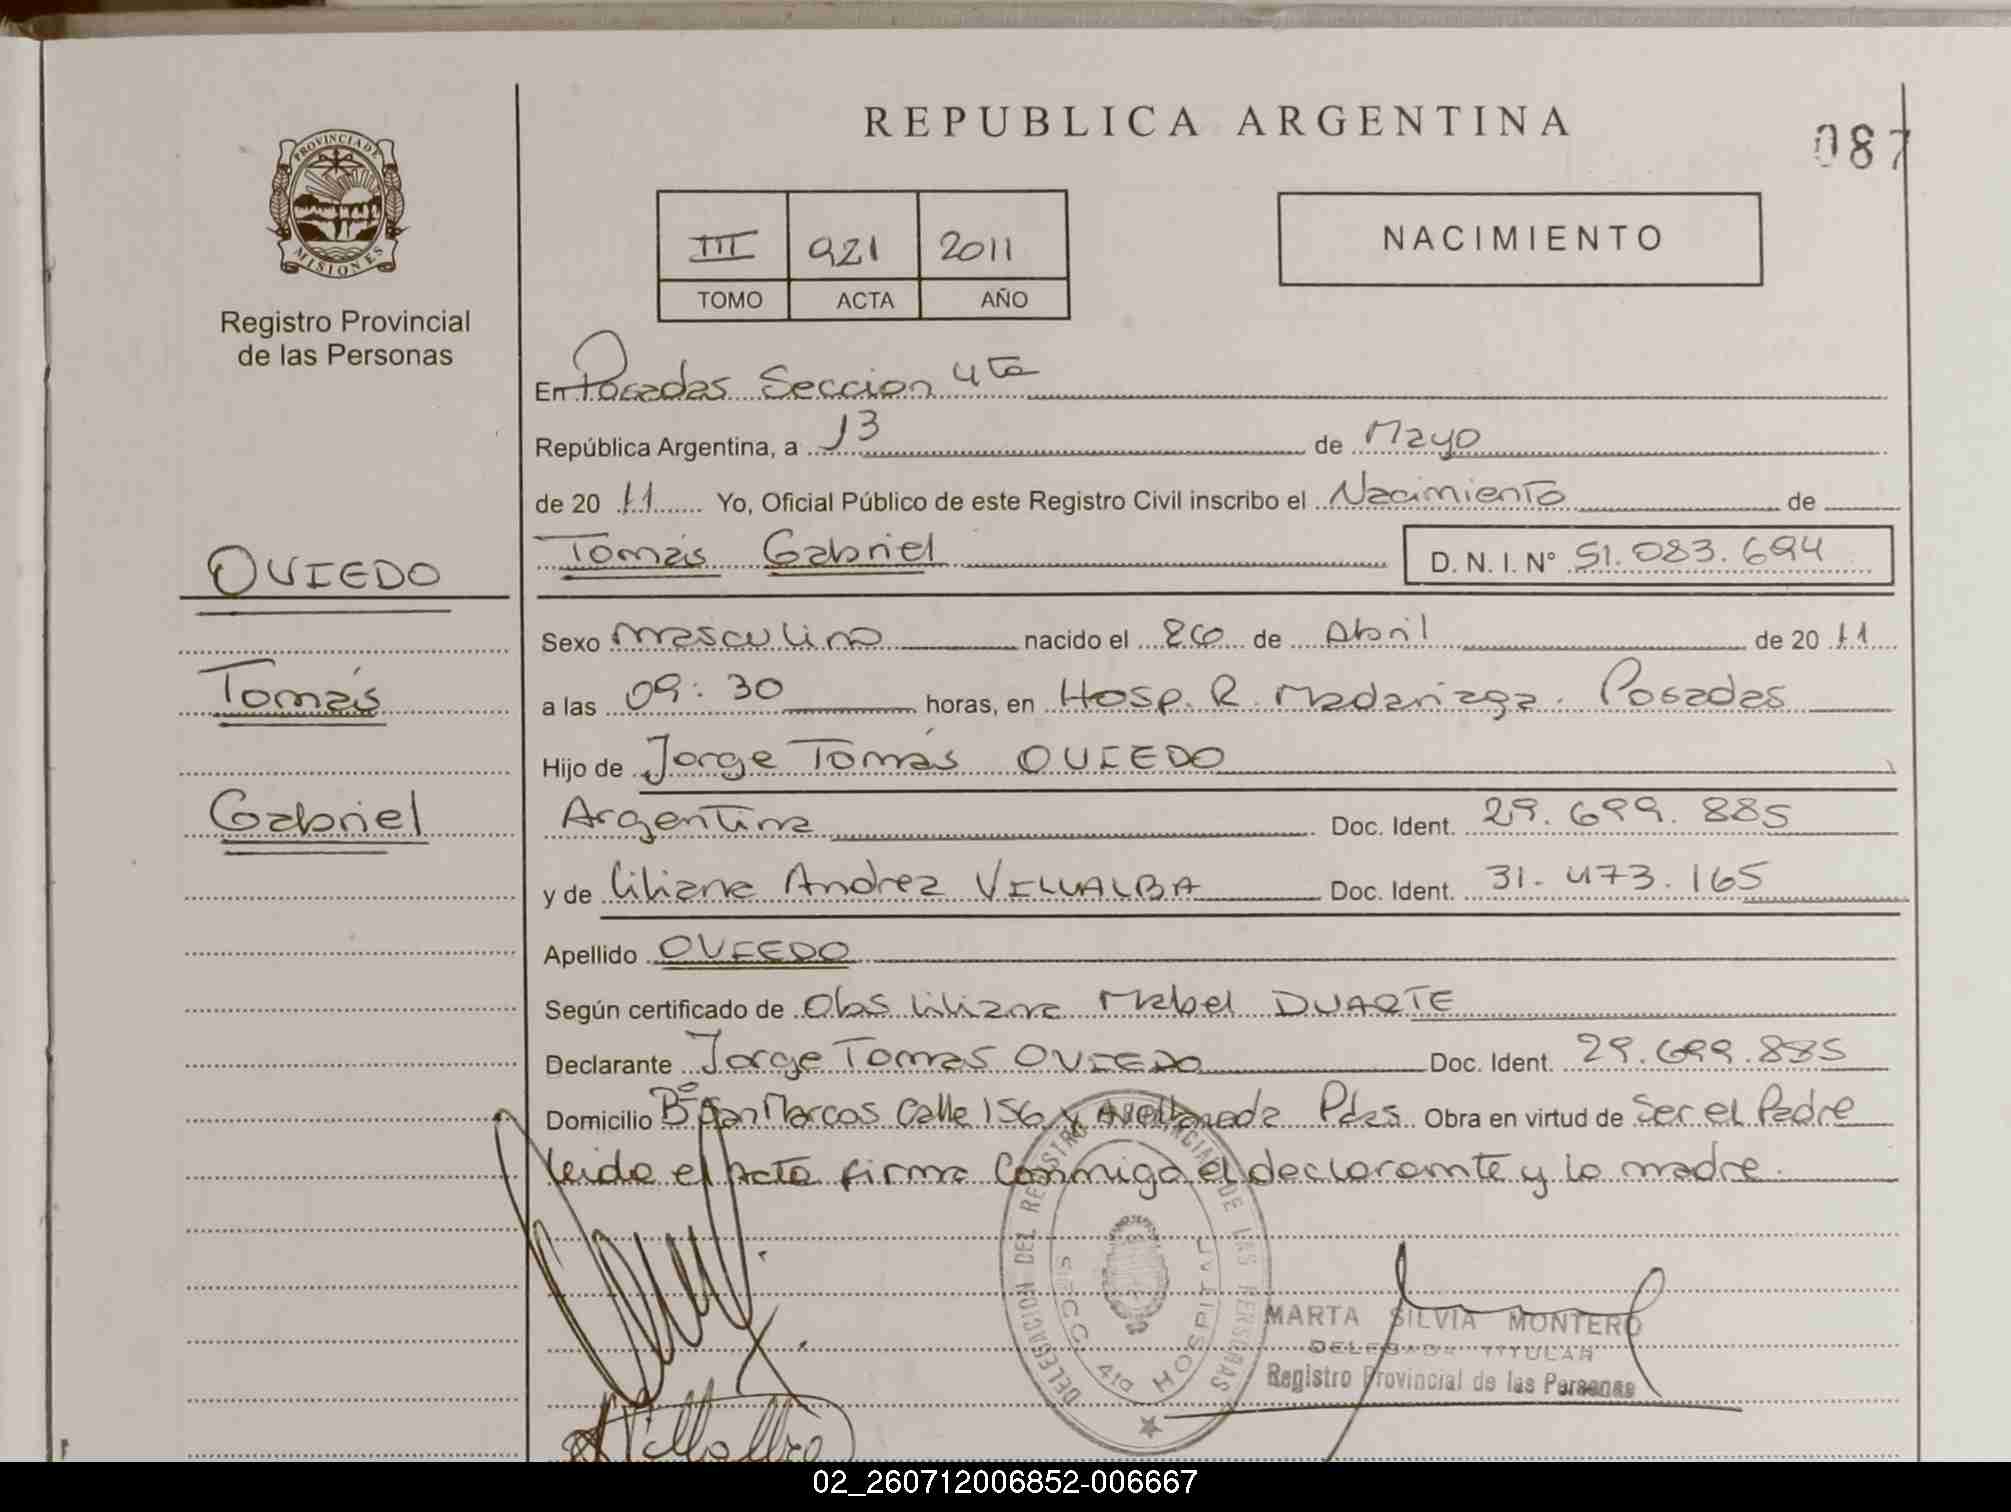 REPUBLICA ARGENTINA
087
PROVINCIA DE
MISIONES
Registro Provincial
de las Personas
III 921 2011
TOMO ACTA AÑO
NACIMIENTO
En Posadas Seccion 4ta
República Argentina, a 13 de Mayo
de 20 11 Yo, Oficial Público de este Registro Civil inscribo el Nacimiento de
Tomás Gabriel D. N. I. Nº 51.083.694
OVIEDO
Tomás
Gabriel
Sexo masculino nacido el 26 de Abril de 20 11
a las 09:30 horas, en Hosp. R. Madariaga. Posadas
Hijo de Jorge Tomás OVIEDO
Argentina Doc. Ident. 29.699.885
y de Liliana Andrea VILLALBA Doc. Ident. 31.473.165
Apellido OVIEDO
Según certificado de Obs Liliana Mabel DUARTE
Declarante Jorge Tomas OVIEDO Doc. Ident. 29.699.885
Domicilio Bº San Marcos Calle 156 y Avellaneda Pdas Obra en virtud de Ser el Padre
leida el acta firma conmigo el declarante y la madre.
DELEGACION DEL REGISTRO PROVINCIAL DE LAS PERSONAS
SECC. 4ta HOSPITAL
MARTA SILVIA MONTERO
DELEGADA TITULAR
Registro Provincial de las Personas
02_260712006852-006667